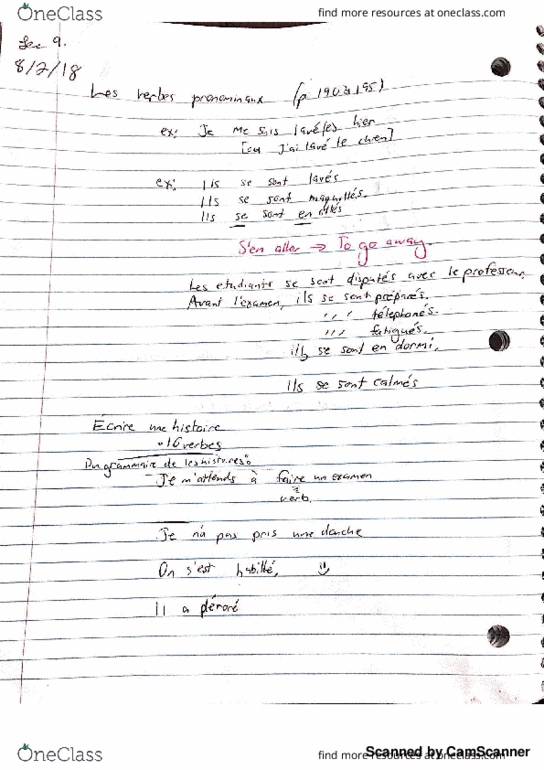 OneClass
find more resources at oneclass.com
Lec 9.
8/2/18
Les verbes pronominaux (p 190 à 195)
ex: Je me suis lavé(e) hier
J'ai lavé le chien]
ex: Ils se sont lavés
Ils se sont maquillés.
Ils se sont en allés
S'en aller → To go away.
Les etudiants se sont disputés avec le professeur.
Avant l'examen, ils se sont préparés.
téléphonés.
fatigués.
ils se sont en dormi.
ils se sont calmés
Écrire une histoire
16 verbes
grammaire de
Je m'attends à faire un examen
verb.
Je pas pris une douche
On s'est habillé,
Il a
OneClass
find more resources at oneclass.com
Scanned by CamScanner